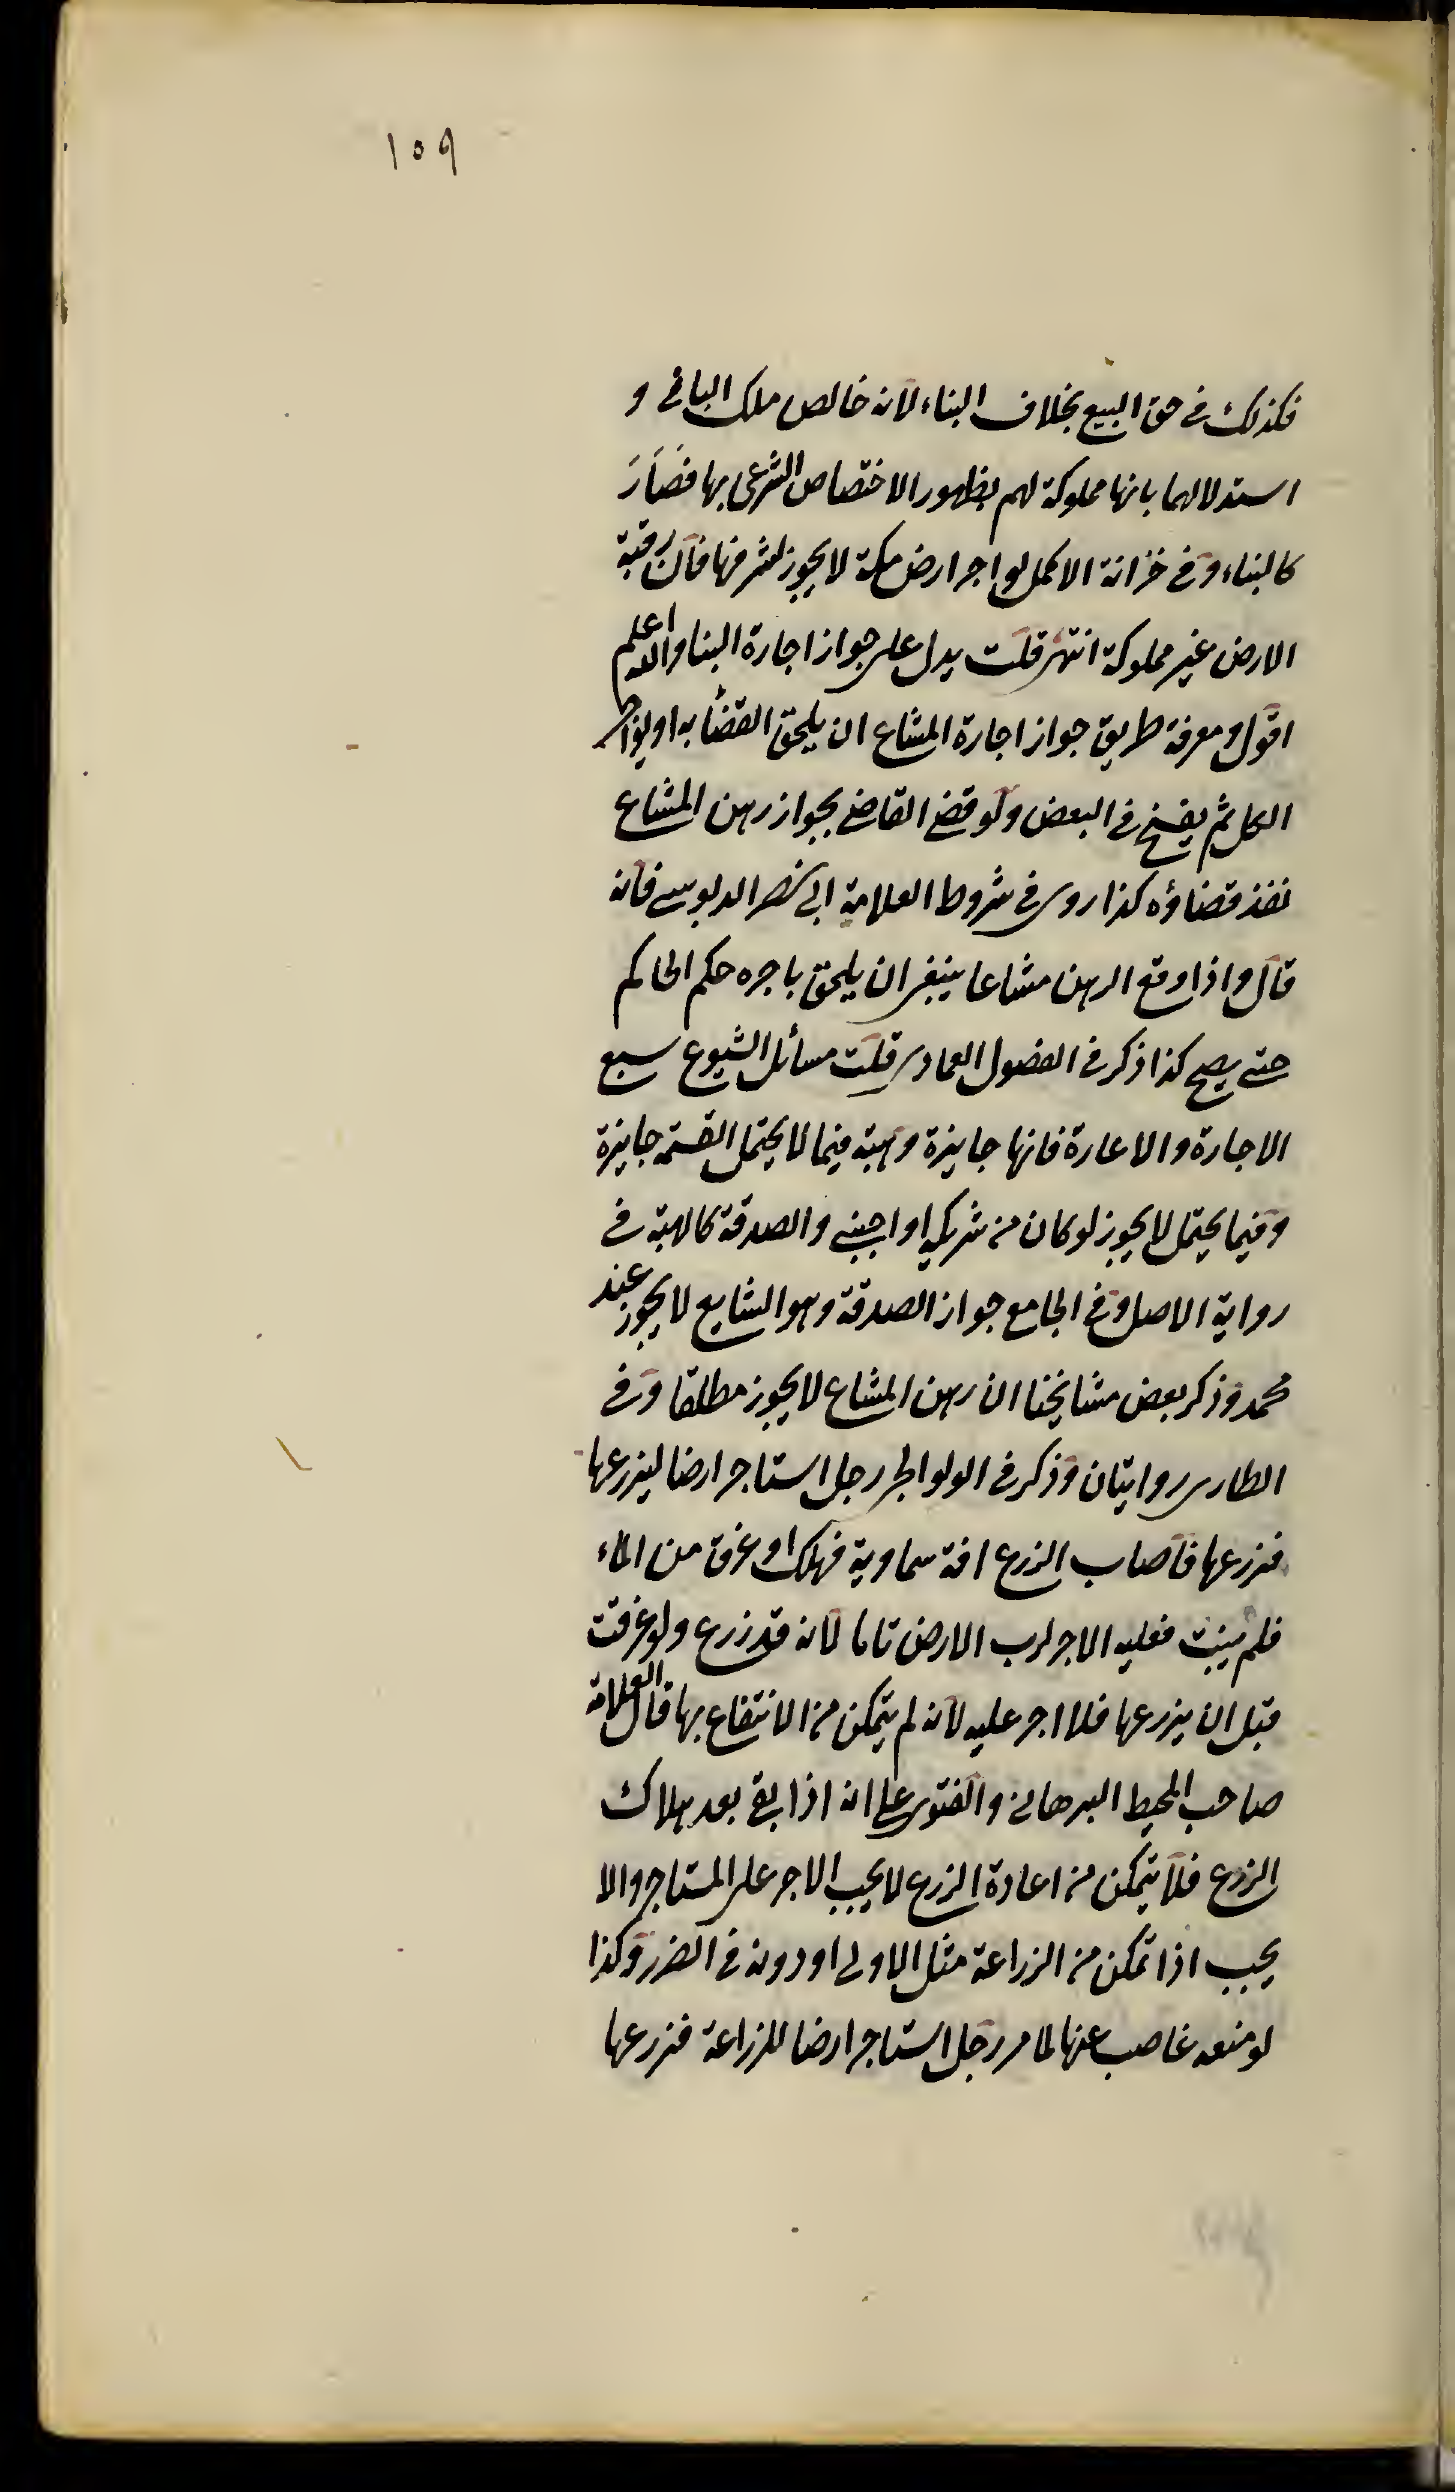 ١٥٩
فكذلك في حق البيع بخلاف البناء لانه خالص ملك الباني و
استدلالهما بانها مملوكة لهم بظهور الاختصاص الشرعي بها فصَارَ
كالبناء وفي خزانة الاكمل لو اجر ارض مكة لا يجوز لشرفها فان رقبة
الارض غير مملوكة انتهى قلت يدل على جواز اجارة البنا والله اعلم
اقول ومعرفة طريق جواز اجارة المشاع ان يلحق القضا به او يواجر
الكل ثم يفسخ في البعض ولو قضى القاضي بجواز رهن المشاع
نفذ قضاؤه كذا روى في شروط العلامة ابي نصر الدبوسي فانه
قال واذا وقع الرهن مشاعا ينبغي ان يلحق باجره حكم الحاكم
حتى يصح كذا ذكر في الفصول العمادي قلت مسائل الشيوع سبع
الاجارة والاعارة فانها جايزة وهبة فيما لا يحتمل القسمة جايزة
وفيما يحتمل لا يجوز لو كان من شريكه او اجنبي والصدقة كالهبة في
رواية الاصل وفي الجامع جواز الصدقة وهو الشايع لا يجوز عند
محمد وذكر بعض مشايخنا ان رهن المشاع لا يجوز مطلقا وفي
الطارى روايتان وذكر في الولوالجي رجل استاجر ارضا ليزرعها
فزرعها فاصاب الزرع افة سماوية فهلك او غرق من الماء
فلم ينبت فعليه الاجر لرب الارض تاما لانه قد زرع ولو غرقت
قبل ان يزرعها فلا اجر عليه لانه لم يتمكن من الانتفاع بها قال العلامة
صاحب المحيط البرهاني والفتوى على انه اذا بقي بعد هلاك
الزرع فلا يتمكن من اعادة الزرع لا يجب الاجر على المستاجر والا
يجب اذا تمكن من الزراعة مثل الاولى او دونه في الضرر وكذا
لو منعه غاصب عنها لما مر رجل استاجر ارضا للزراعة فزرعها